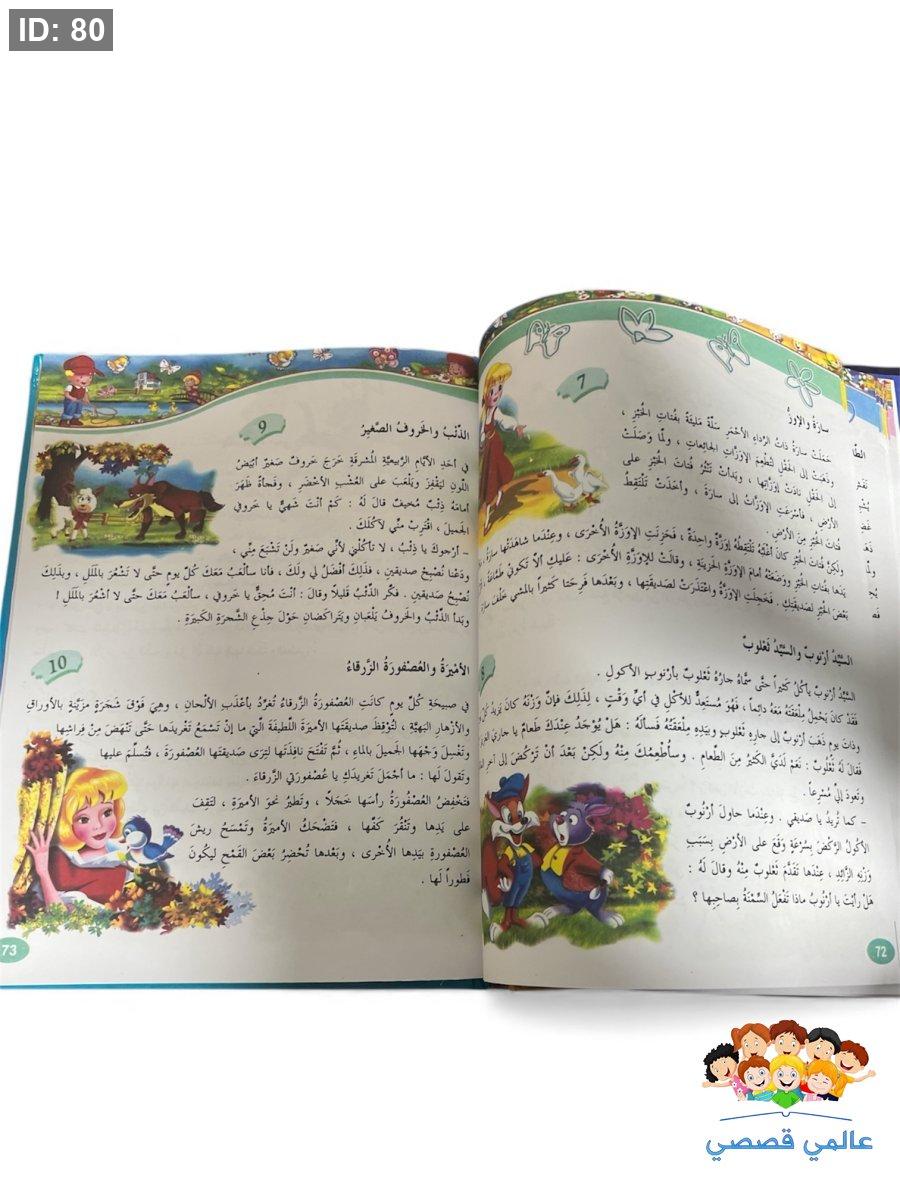 ID: 80
7
سارَةُ والإوَزُّ
حَمَلَتْ سارَةُ ذاتُ الرِّداءِ الأحْمَرِ سَلَّةً مَليئَةً بِفُتاتِ الْخُبْزِ ،
وذَهَبَتْ إلى الحَقْلِ لِتُطْعِمَ الإوَزّاتِ الجائِعاتِ ، ولَمّا وَصَلَتْ
إلى الحَقْلِ نادَتْ إوَزّاتِها ، وبَدَأتْ تَنْثُرُ فُتاتَ الْخُبْزِ على
الأرْضِ . فأسْرَعَتِ الإوَزّاتُ إلى سارَةَ ، وأخَذَتْ تَلْتَقِطُ
فُتاتَ الْخُبْزِ مِنَ الأرْضِ .
ولكِنَّ فُتاتَ الْخُبْزِ كانَ أغْلَبُهُ تَلْتَقِطُهُ إوَزَّةٌ واحِدَةٌ ، فَحَزِنَتِ الإوَزَّةُ الأُخْرَى ، وعِنْدَما شاهَدَتْها سارَةُ
يَدَها بِفُتاتِ الْخُبْزِ ووَضَعَتْهُ أمامَ الإوَزَّةِ الْحَزينَةِ ، وقالَتْ لِلإوَزَّةِ الأُخْرَى : عَلَيكِ ألاّ تَكوني طَمّاعَةً
بَعْضَ الْخُبْزِ لِصَديقَتِكِ . فَخَجِلَتِ الإوَزَّةُ واعْتَذَرَتْ لِصَديقَتِها ، وبَعْدَها فَرِحَتا كَثيراً بِالمَشْيِ خَلْفَ
8
السَّيِّدُ أرْنوبٌ والسَّيِّدُ ثَعْلوبٌ
السَّيِّدُ أرْنوبٌ يأكُلُ كَثيراً حتَّى سَمّاهُ جارُهُ ثَعْلوبٌ بأرْنوبٍ الأكولِ .
فَقَدْ كانَ يَحْمِلُ مِلْعَقَتَهُ مَعَهُ دائِماً ، فَهُوَ مُسْتَعِدٌّ لِلأكْلِ في أيِّ وَقْتٍ ، لِذلِكَ فإنَّ وَزْنَهُ كانَ يَزيدُ
وذاتَ يومٍ ذَهَبَ أرْنوبٌ إلى جارِهِ ثَعْلوبٍ وبِيَدِهِ مِلْعَقَتُهُ فَسألَهُ : هَلْ يُوْجَدُ عِنْدَكَ طَعامٌ يا جاري
فَقالَ لَهُ ثَعْلوبٌ : نَعَمْ لَدَيَّ الكَثيرُ مِنَ الطَّعامِ . وسأُطْعِمُكَ مِنْهُ ولكِنْ بَعْدَ أنْ تَرْكُضَ إلى آخِرِ
وتَعودَ إليَّ مُسْرِعاً .
– كما تُريدُ يا صَديقي . وعِنْدَما حاوَلَ أرْنوبٌ
الأكُولُ الرَّكْضَ بِسُرْعَةٍ وَقَعَ على الأرْضِ بِسَبَبِ
وَزْنِهِ الزّائِدِ ، عِنْدَها تَقَدَّمَ ثَعْلوبٌ مِنْهُ وقالَ لَهُ :
هَلْ رأيْتَ يا أرْنُوبُ ماذا تَفْعَلُ السِّمْنَةُ بِصاحِبِها ؟
72
9
الذّئْبُ والخَروفُ الصَّغيرُ
في أحَدِ الأيّامِ الرَّبيعيَّةِ المُشْرِقَةِ خَرَجَ خَروفٌ صَغيرٌ أبْيَضُ
اللَّونِ لِيَقْفِزَ ويَلْعَبَ على العُشْبِ الأخْضَرِ ، وفَجأةً ظَهَرَ
أمامَهُ ذِئْبٌ مُخيفٌ قالَ لَهُ : كَمْ أنْتَ شَهيٌّ يا خَروفي
الجَميلَ ، اقْتَرِبْ مِنّي لآكُلَكَ .
– أرْجوكَ يا ذِئْبُ ، لا تأكُلْني لأنّي صَغيرٌ ولَنْ تَشْبَعَ مِنّي ،
ودَعْنا نُصْبِحْ صديقين ، فذلِكَ أفْضَلُ لي ولَكَ ، فأنا سألْعَبُ مَعَكَ كُلَّ يومٍ حتَّى لا تَشْعُرَ بالمَلَلِ ، وبذلِكَ
نُصْبِحُ صديقينِ . فكَّرَ الذّئْبُ قَليلاً وقالَ : أنْتَ مُحِقٌّ يا خَروفي ، سألْعَبُ مَعَكَ حتَّى لا أشْعُرَ بالمَلَلِ !
وبَدأَ الذّئْبُ والخَروفُ يَلْعَبانِ ويَتَراكَضانِ حَوْلَ جِذْعِ الشَّجَرَةِ الكَبيرَةِ .
10
الأميْرَةُ والعُصْفورَةُ الزَّرْقاءُ
في صبيحَةِ كُلِّ يومٍ كانَتِ العُصْفورَةُ الزَّرْقاءُ تُغَرِّدُ بأعْذَبِ الألْحانِ ، وهِيَ فَوْقَ شَجَرَةٍ مزَيَّنَةٍ بالأوراقِ
والأزْهارِ البَهيَّةِ ، لتُوْقِظَ صَديقَتَها الأميرَةَ اللَّطيفَةَ الَّتي ما إنْ تَسْمَعُ تَغْريدَها حَتَّى تَنْهَضَ مِنْ فِراشِها
وتَغْسِلَ وَجْهَها الجَميلَ بالماءِ ، ثُمَّ تَفْتَحَ نافِذَتَها لِتَرَى صَديقَتَها العُصْفورَةَ ، فتُسلِّمَ عليها
وتَقولَ لَها : ما أجْمَلَ تَغريدَكِ يا عُصْفورَتي الزَّرْقاءَ .
فتَخْفِضُ العُصْفُورَةُ رأسَها خَجَلاً ، وتَطيرُ نحوَ الأميرَةِ ، لتَقِفَ
على يَدِها وتَنْقُرَ كَفَّها ، فتَضْحَكُ الأميرَةُ وتَمْسَحُ ريشَ
العُصْفورةِ بيَدِها الأُخْرى ، وبَعْدَها تُحْضِرُ بَعْضَ القَمْحِ ليكُونَ
فَطوراً لَها .
73
عالمي قصصي